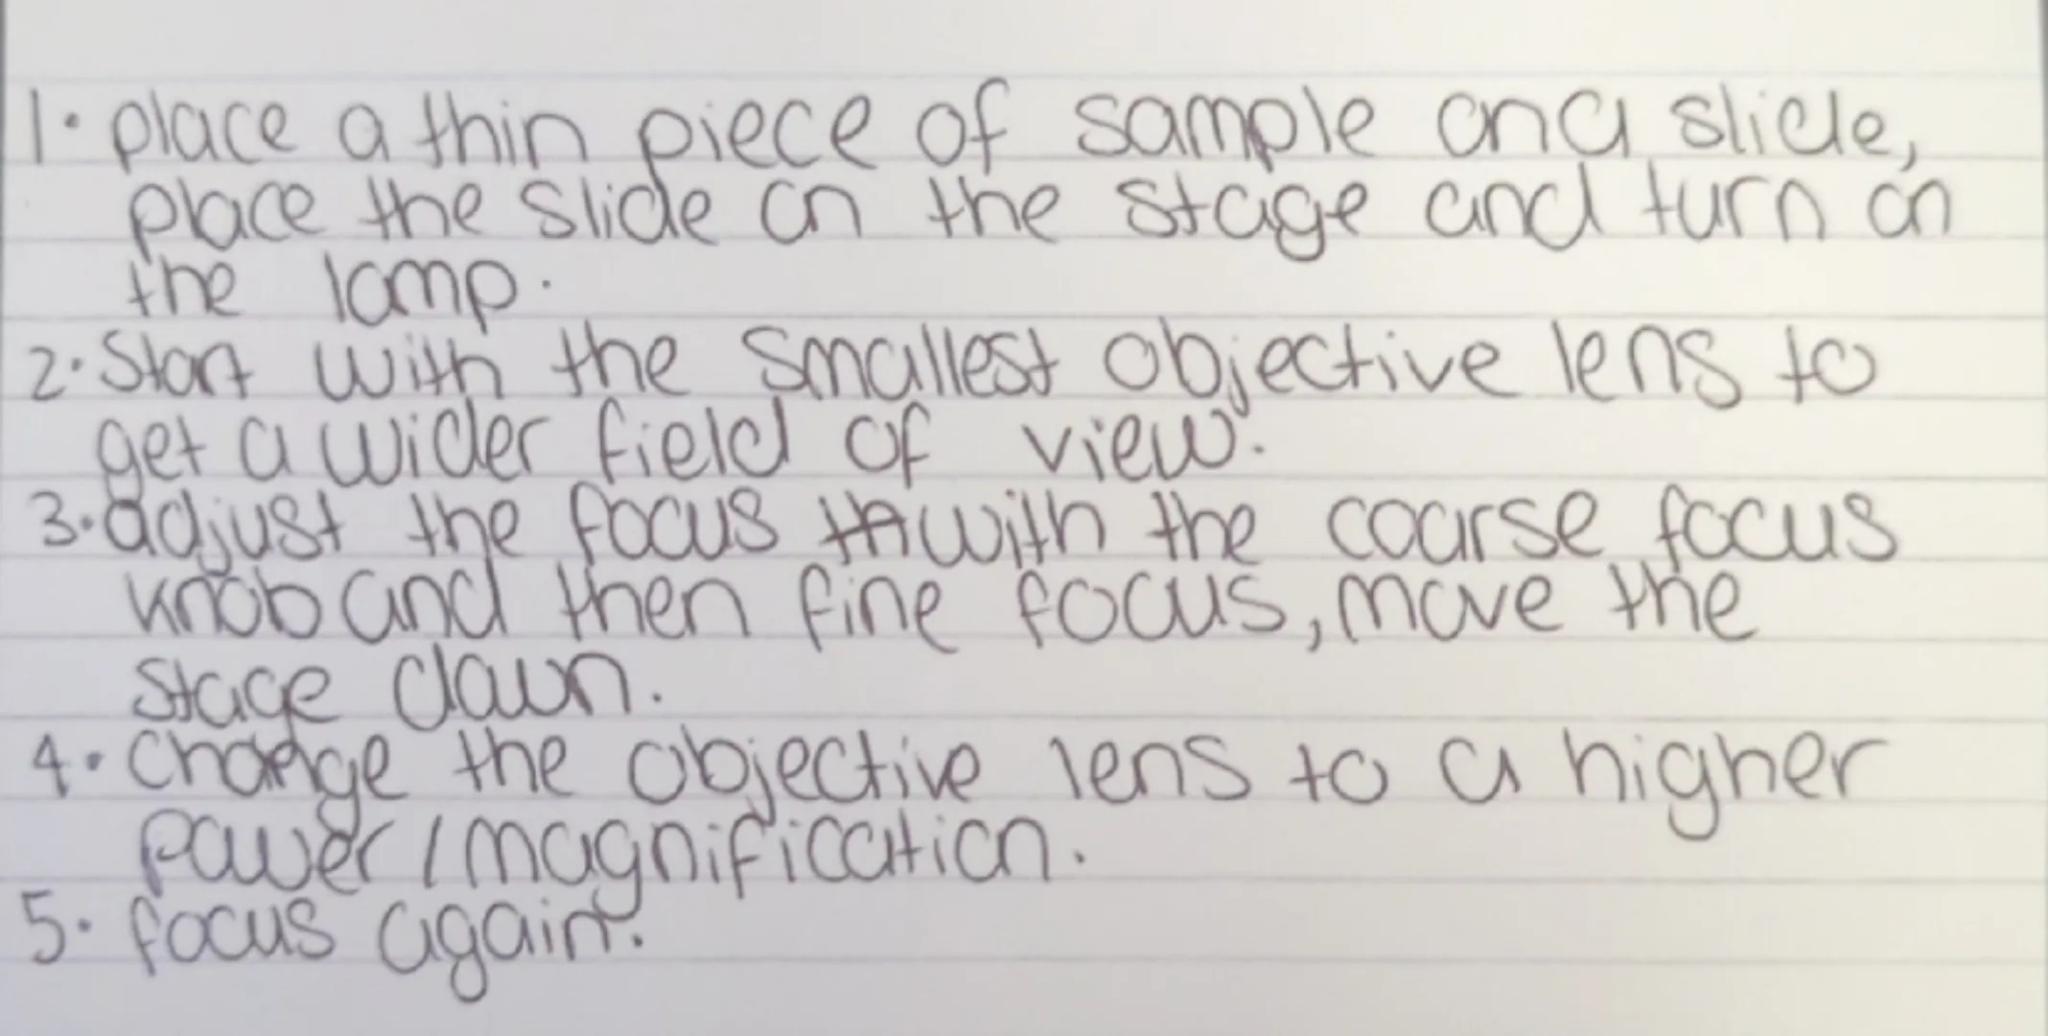 1. place a thin piece of sample on a slide,
place the slide on the stage and turn on
the lamp.
2. Start with the smallest objective lens to
get a wider field of view.
3. adjust the focus with the coarse focus
knob and then fine focus, move the
stage down.
4. change the objective lens to a higher
power / magnification.
5. focus again.